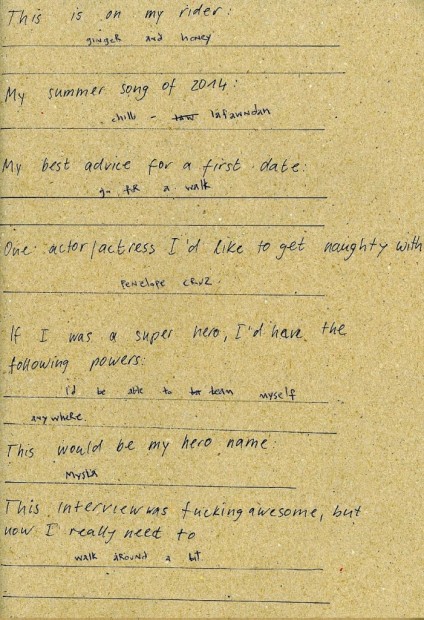 This is on my rider:
ginger and honey
My summer song of 2014:
chills - lafawndah
My best advice for a first date:
go for a walk
One actor/actress I'd like to get naughty with
Penelope Cruz
If I was a super hero, I'd have the
following powers:
I'd be able to beam myself
anywhere.
This would be my hero name:
This interview was fucking awesome, but
now I really need to
walk around a bit